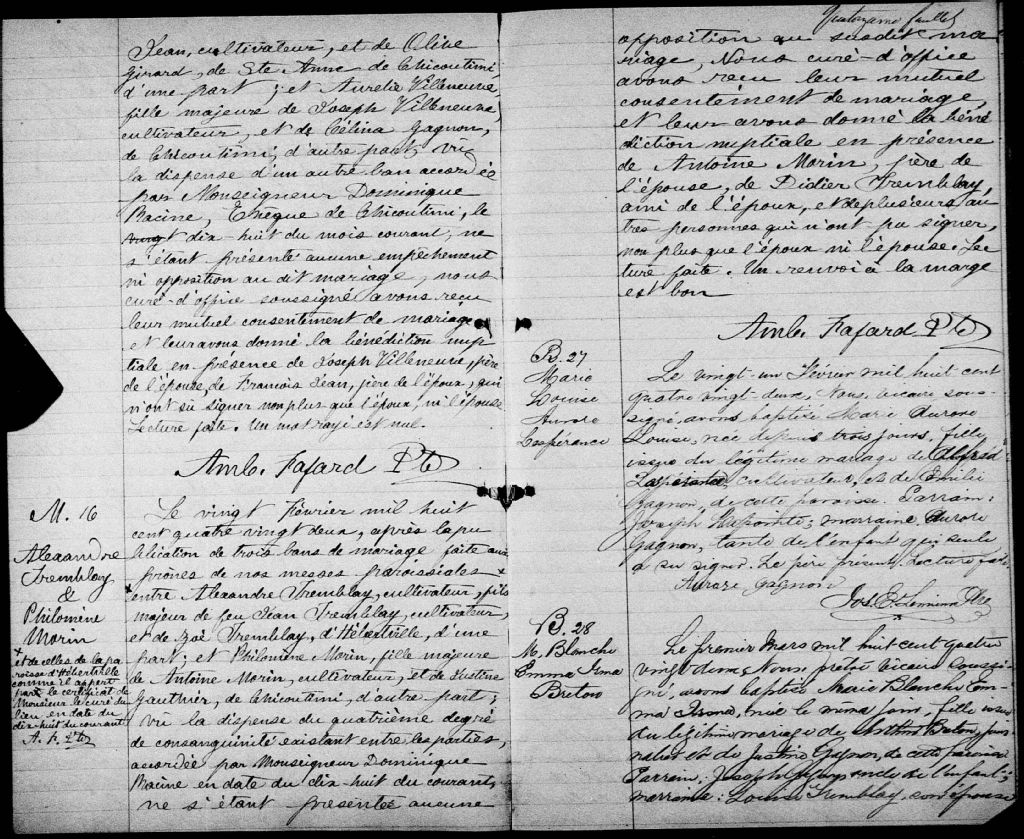 Jean, cultivateur, et de Olive
Girard, de Ste Anne de Chicoutimi,
d'une part; et Aurelie Villeneuve,
fille majeure de Joseph Villeneuve,
cultivateur, et de Célina Gagnon,
de Chicoutimi, d'autre part, vu
la dispense d'un autre ban accordée
par Monseigneur Dominique
Racine, Evêque de Chicoutimi, le
vingt dix-huit du mois courant, ne
s'étant présenté aucune empêchement
ni opposition au dit mariage, nous
curé-d'office soussigné avons reçu
leur mutuel consentement de mariage
et leur avons donné la bénédiction nup
tiale en présence de Joseph Villeneuve, père
de l'épouse, de Francois Jean, père de l'époux, qui
n'ont su signer non plus que l'époux, ni l'épouse
Lecture faite. Un mot rayé est nul.
Amb. Fafard Ptre
M. 16
Alexandre
Tremblay
&
Philomène
Morin
Le vingt Février mil huit
cent quatre vingt deux, après la pu
blication de trois bans de mariage faite aux
prônes de nos messes paroissiales x
entre Alexandre Tremblay, cultivateur, fils
majeur de feu Jean Tremblay, cultivateur
et de Zoé Tremblay, d'Hébertville, d'une
part; et Philomène Morin, fille majeure
de Antoine Morin, cultivateur, et de Justine
Gauthier, de Chicoutimi, d'autre part;
vu la dispense du quatrième degré
de consanguinité existant entre les parties,
accordée par Monseigneur Dominique
Racine en date du dix-huit du courant,
ne s'étant présentée aucune
x
et de celles de la pa
roisse d'Hébertville
comme il appert
par le certificat de
Monsieur le curé du
lieu en date du
dix-huit du courant
A. F. Ptre
Quatorzième feuillet
opposition au susdit ma
riage, Nous curé-d'office
avons reçu leur mutuel
consentement de mariage,
et leur avons donné la béné
diction nuptiale en présence
de Antoine Morin, père de
l'épouse, de Didier Tremblay,
ami de l'époux, et de plusieurs au
tres personnes qui n'ont pu signer,
non plus que l'époux ni l'épouse. Lec
ture faite. Un renvoi à la marge
est bon
Amb. Fafard Ptre
B. 27
Marie
Louise
Aurore
Lespérance
Le vingt-un Février mil huit cent
quatre vingt-deux, Nous, vicaire sous-
signé, avons baptisé Marie Aurore
Louise, née depuis trois jours, fille
issue du légitime mariage de Alfred
Lespérance, cultivateur, et de Emilie
Gagnon, de cette paroisse. Parrain:
Joseph Lapointe; marraine, Aurore
Gagnon, tante de l'enfant qui seule
a su signer. Le père présent. Lecture faite.
Aurore Gagnon
Jos. E. Ptre
B. 28
M. Blanche
Emma Irma
Breton
Le premier Mars mil huit cent quatre
vingt deux, Nous, prêtre vicaire soussi
gné, avons baptisé Marie Blanche Em
ma Irma, née le même jour, fille issue
du légitime mariage de Breton, jour
nalier et de Justine Gagnon, de cette paroisse
Parrain: Joseph de l'enfant;
marraine: Louise Tremblay, son épouse